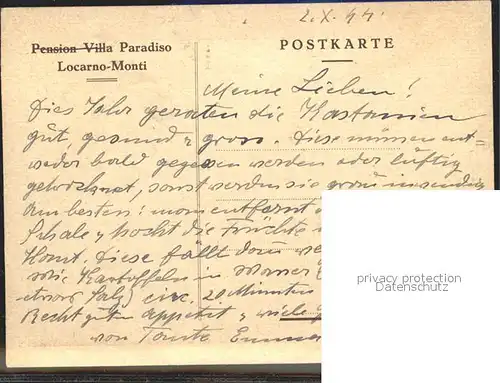 2. X. 44.
Pension Villa Paradiso
Locarno-Monti
POSTKARTE
Meine Lieben!
Dies Jahr geraten die Kastanien
gut, gesund & gross. Diese müssen ent=
weder bald gegessen werden oder luftig
getrocknet, sonst werden sie grau inwendig
Am besten: man entfernt d
Schale & kocht die Früchte
Haut. Diese fällt dann
wie Kartoffeln in Wasser (
etwas Salz) circ. 20 Minuten
Recht guten Appetit & viele
von Tante Emma
privacy protection
Datenschutz